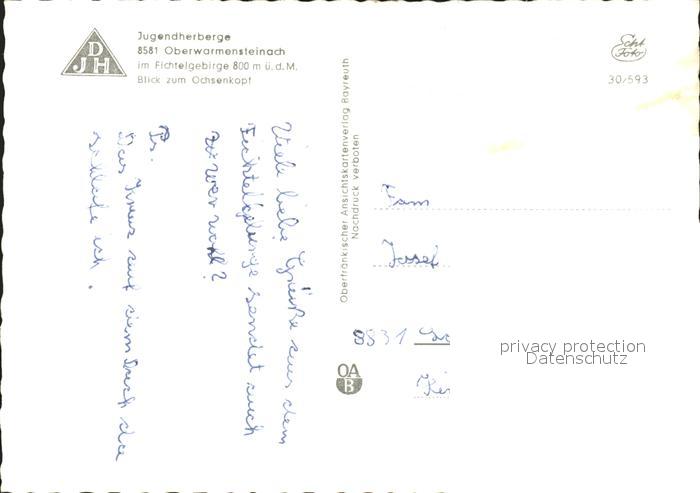 DJH
Jugendherberge
8581 Oberwarmensteinach
im Fichtelgebirge 800 m ü.d.M.
Blick zum Ochsenkopf
Echt Foto
30/593
Viele liebe Grüße aus dem
Fichtelgebirge sendet euch
zwar wohl?
Ps.
Das Kreuz auf dem Dach da
schlafe ich.
Oberfränkischer Ansichtskartenverlag Bayreuth
Nachdruck verboten
Fam
Josef
8531
OAB
privacy protection
Datenschutz